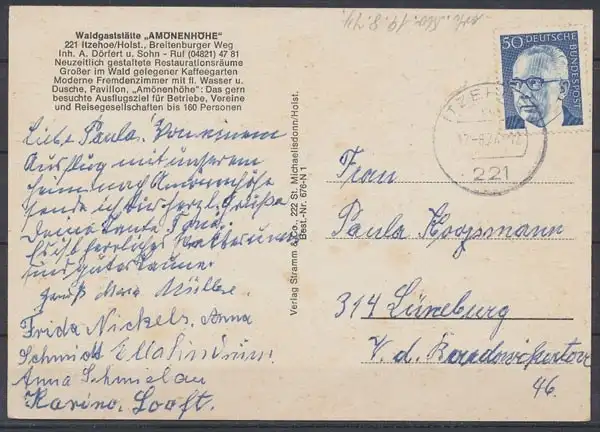 Waldgaststätte „AMÖNENHÖHE"
221 Itzehoe/Holst., Breitenburger Weg
Inh. A. Dörfert u. Sohn - Ruf (04821) 47 81
Neuzeitlich gestaltete Restaurationsräume
Großer im Wald gelegener Kaffeegarten
Moderne Fremdenzimmer mit fl. Wasser u.
Dusche, Pavillon, „Amönenhöhe": Das gern
besuchte Ausflugsziel für Betriebe, Vereine
und Reisegesellschaften bis 160 Personen
Liebe Paula! Von einem
Ausflug mit unserem
Heim nach Amönenhöhe
sende ich dir herzl. Grüße
deine Tante
Es ist herrliches Wetter und
gute Laune
Gruß Müller.
Frida Nickels, Anna
Schmidt
Anna Schmielau
Karina Looft.
Verlag Stramm & Co., 222 St. Michaelisdonn/Holst.
Best.-Nr. 676-N 1
50 DEUTSCHE BUNDESPOST
ITZEHOE
221
Frau
Paula Koopmann
314 Lüneburg
V. d.
46.